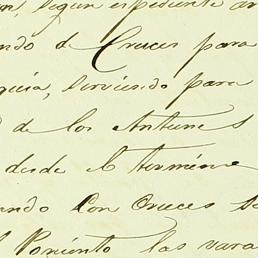 segun espediente ar
ndo de Cruces para
quia, servido para
de los Antunes
desde el termino
ando con Cruces
Poniento las vara